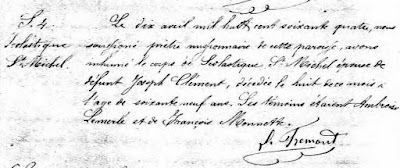 S. 4
Scolastique
St. Michel.
Le dix avril mil huit cent soixante quatre, nous
soussigné prêtre missionnaire de cette paroisse, avons
inhumé le corps de Scolastique St. Michel épouse de
défunt Joseph Clément, décédée le huit de ce mois à
l'age de soixante neuf ans. Les témoins étaient Ambroise
Lemerle et de François Monnette.
Tremont